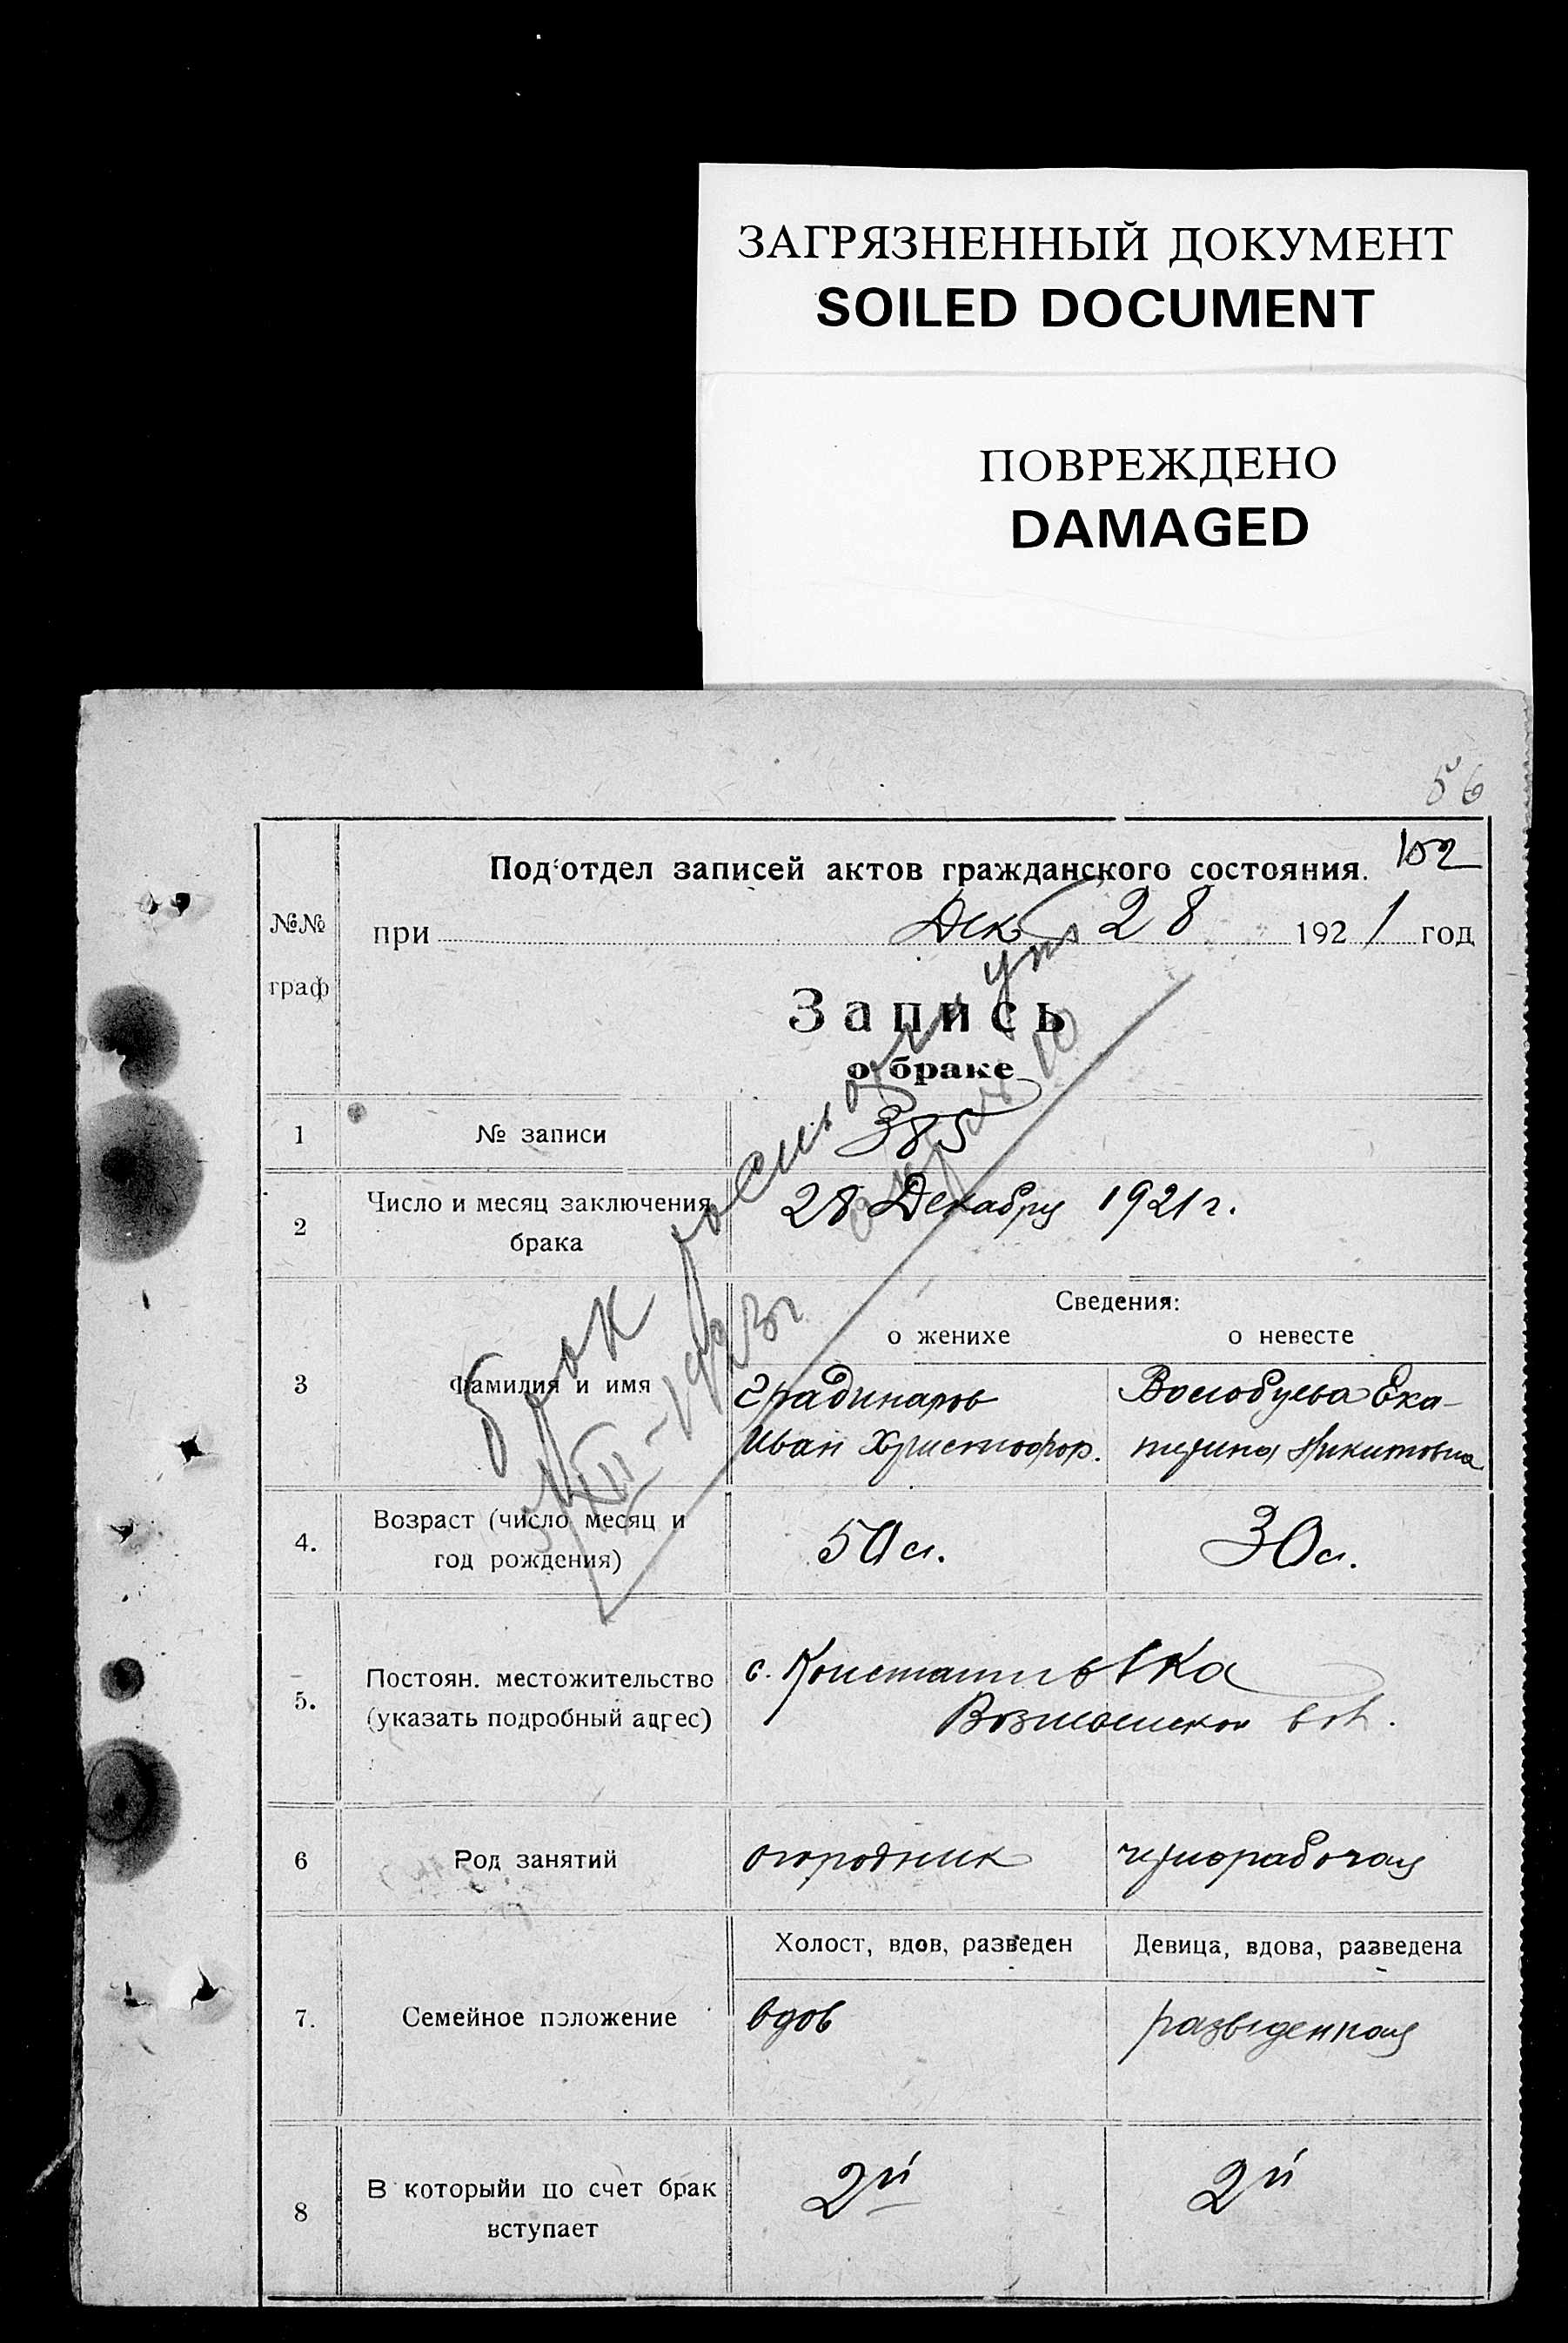 ЗАГРЯЗНЕННЫЙ ДОКУМЕНТ
SOILED DOCUMENT
ПОВРЕЖДЕНО
DAMAGED
56
102
Подотдел записей актов гражданского состояния.
№№
граф
при Дек 28 1921 год
Запись
о браке
1 № записи 385
2 Число и месяц заключения
брака
28 Декабря 1921 г.
Сведения:
о женихе о невесте
3 Фамилия и имя
Градинаров
Иван Христофор.
Волобуева Ека-
терина Никитовна
брак
XII-1923г
4. Возраст (число месяц и
год рождения)
50 л. 30 л.
5. Постоян. местожительство
(указать подробный адрес)
с. Константиновка
вол.
6 Род занятий огородник чернорабочая
Холост, вдов, разведен Девица, вдова, разведена
7. Семейное положение вдов разведенная
8 В которыйи по счет брак
вступает
2й 2й